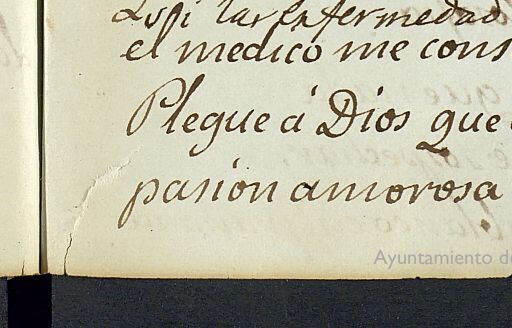 enfermedad
el medico me cons
Plegue á Dios que
pasion amorosa
Ayuntamiento de